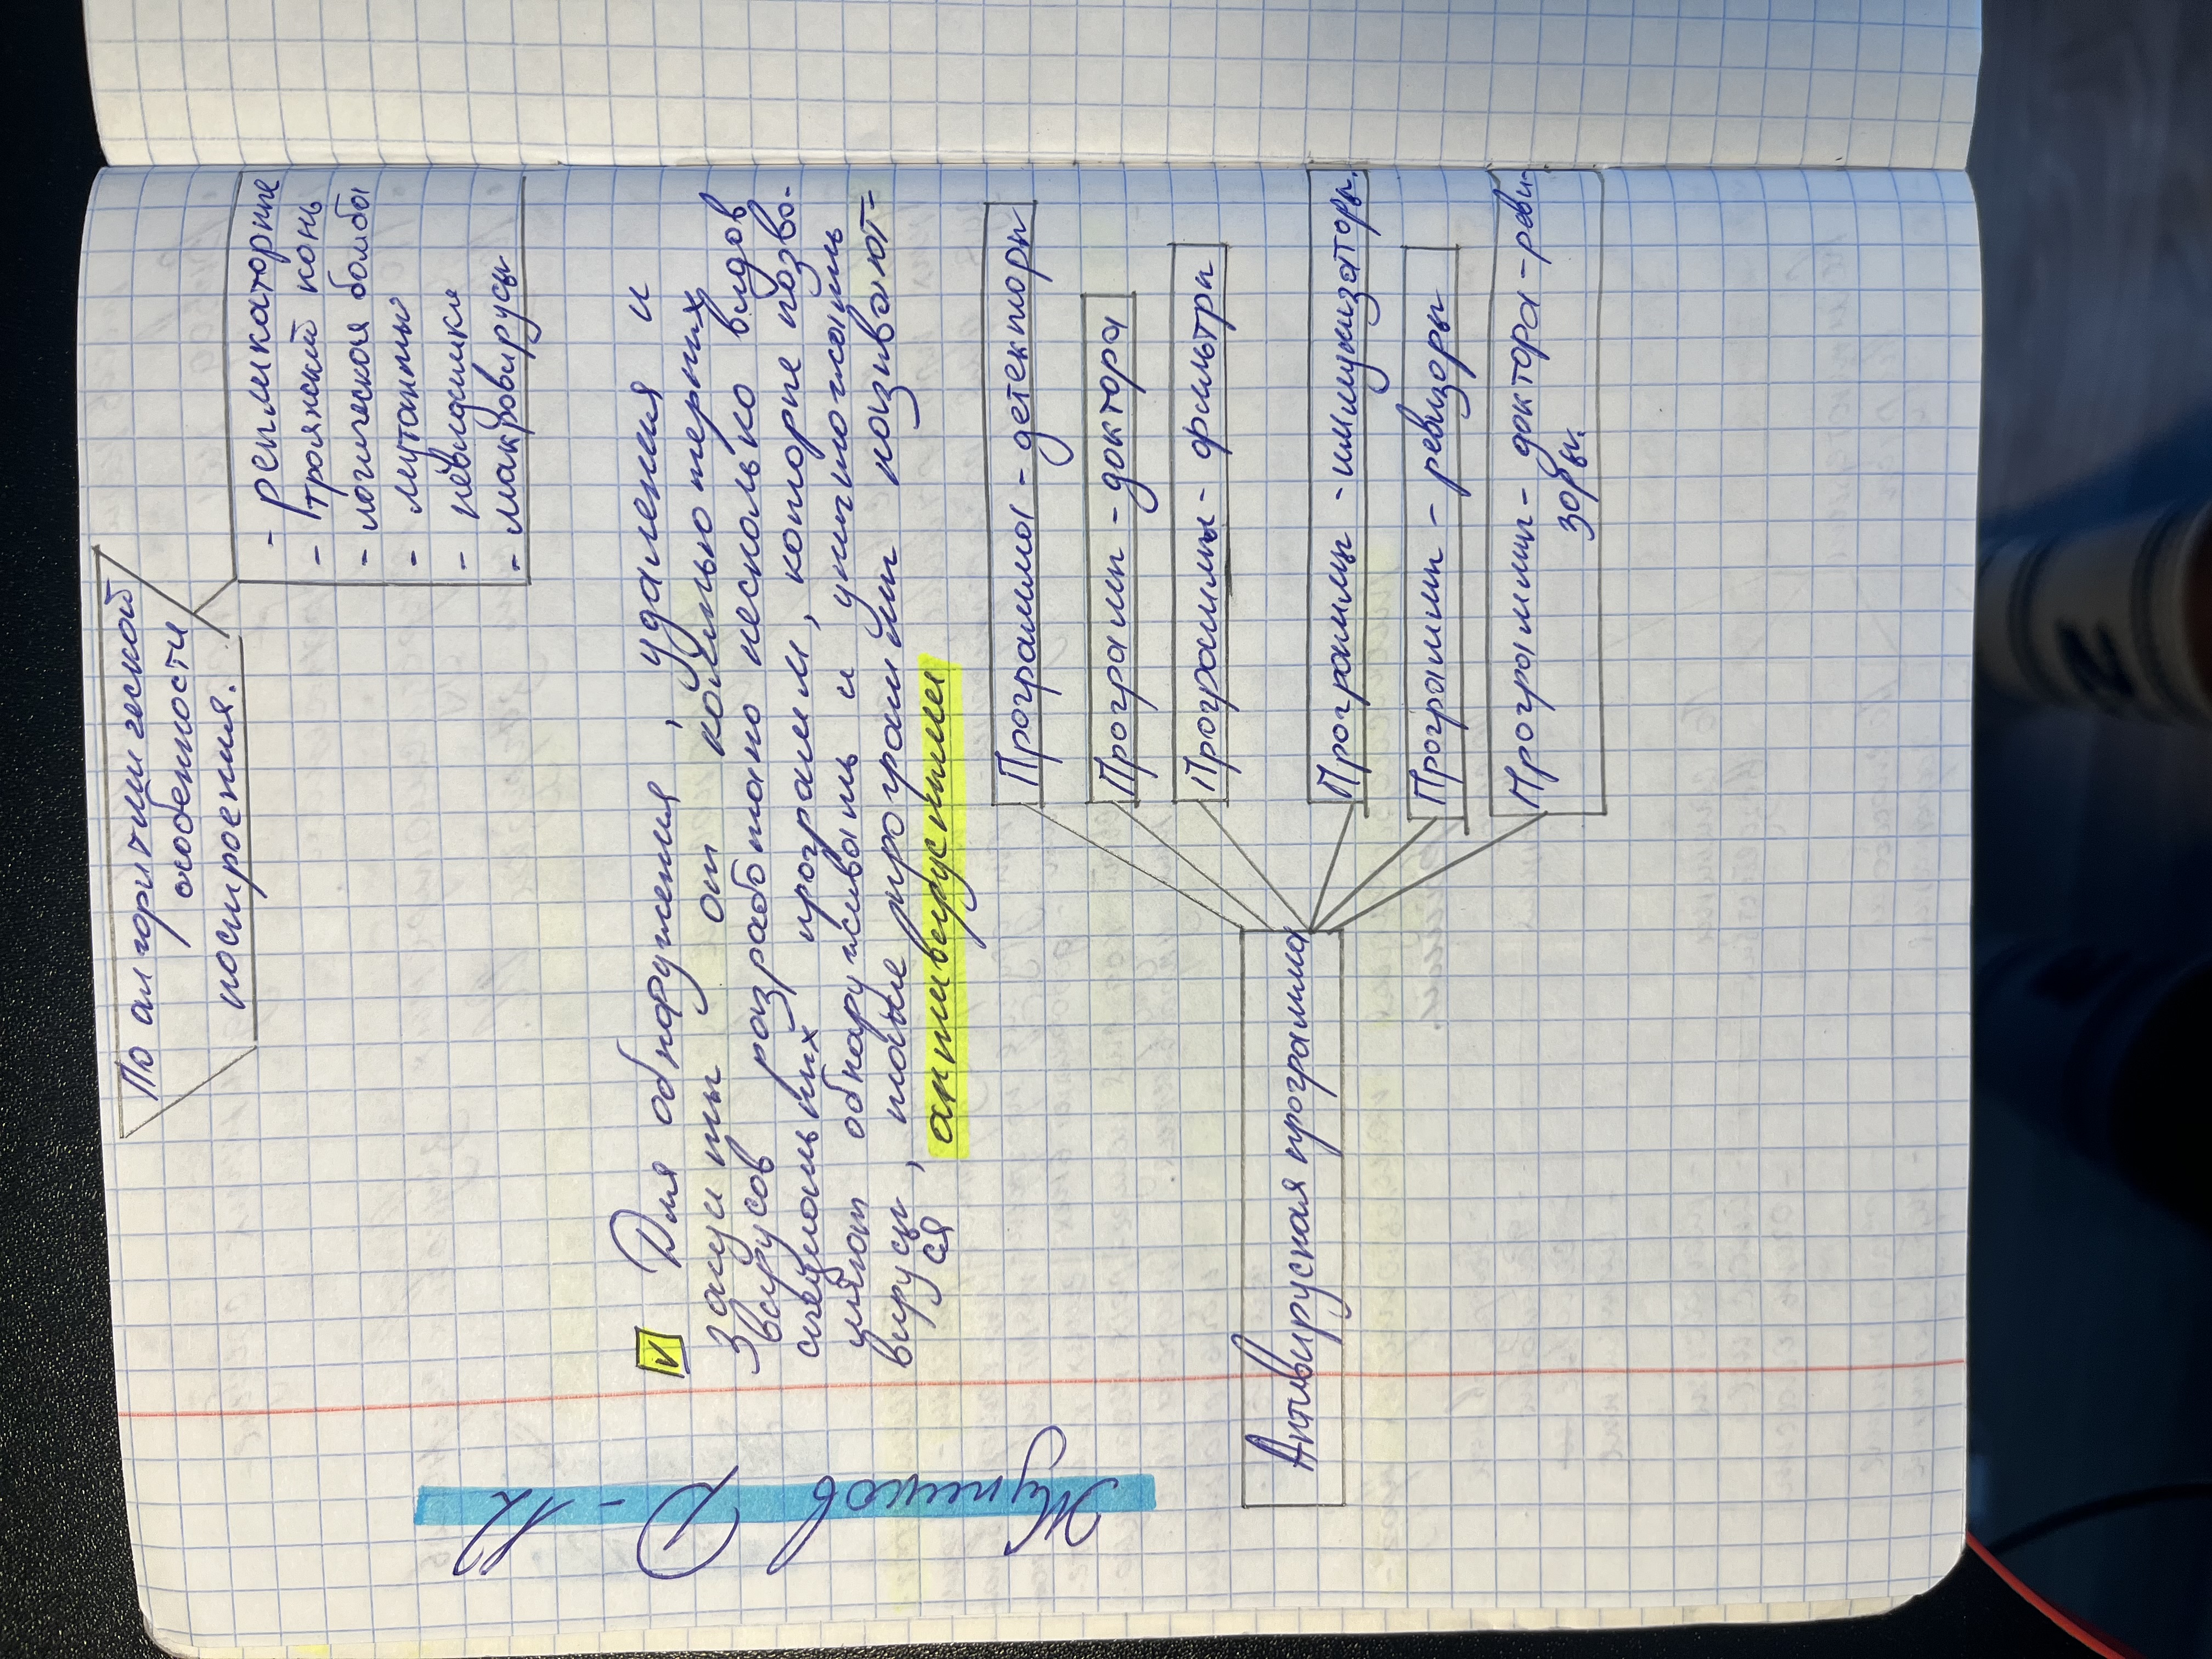 По алгоритмической
особенности
построения.
- репликаторные
- троянский конь
- логическая бомба
- мутанты
- невидимки
- макровирусы
Для обнаружения, удаления и
защиты от компьютерных
вирусов разработано несколько видов
специальных программ, которые позво-
ляют обнаруживать и уничтожать
вирусы, такие программы называют-
ся антивирусными
Антивируская программа
Программа - детекторы
Програмы - доктора
Программы - фильтры
Программы - иммунизаторы.
Программы - ревизоры
Программы - доктора - реви-
зоры.
Р - 12